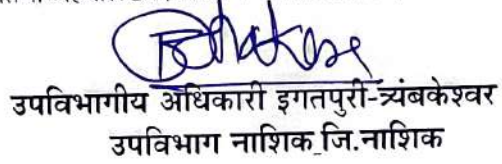 उपविभागीय अधिकारी इगतपुरी-त्र्यंबकेश्वर
उपविभाग नाशिक जि.नाशिक